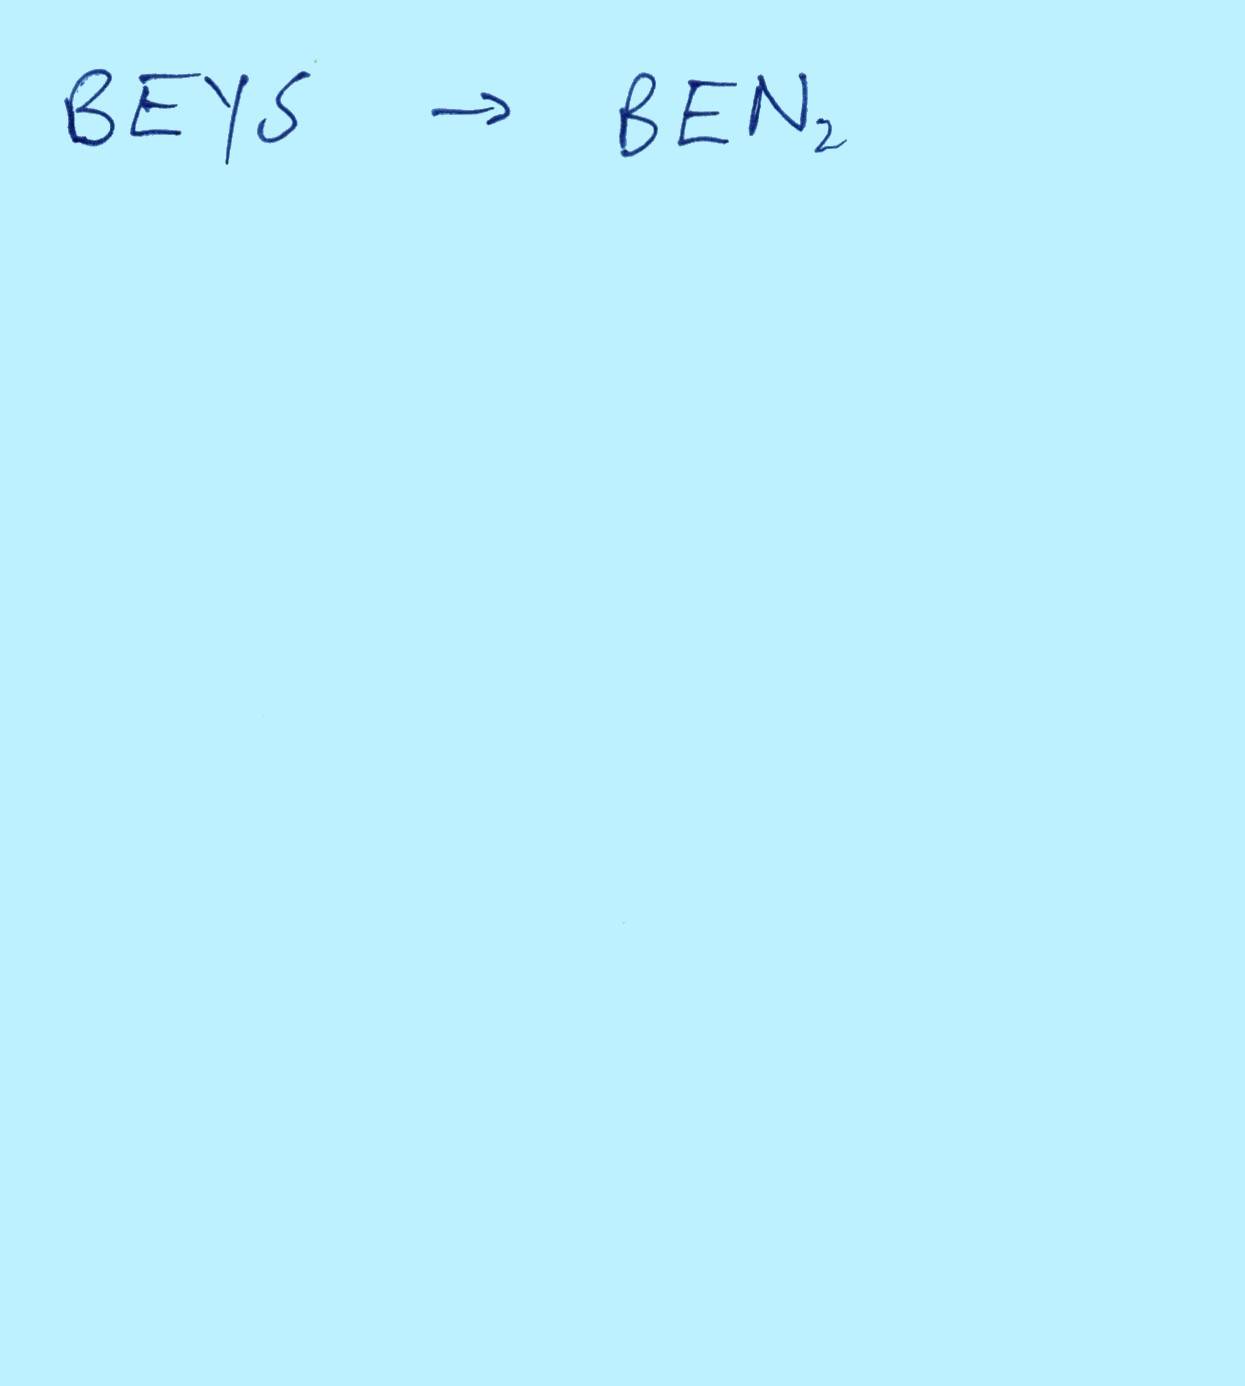 BEYS → BEN₂